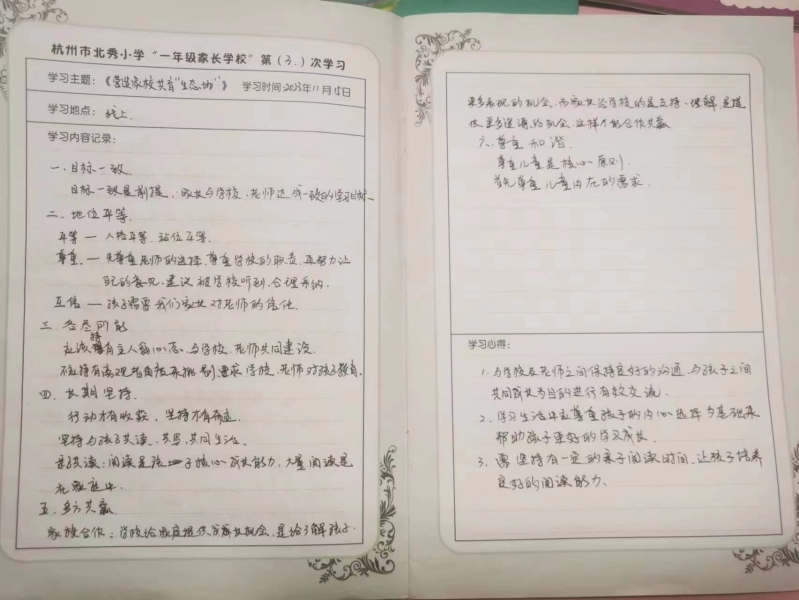 杭州市北秀小学“一年级家长学校”第（3.）次学习
学习主题：《营造家校共育“生态场”》 学习时间:2023年11月15日
学习地点： 线上.
学习内容记录：
一.目标一致
目标一致是前提，家长与学校、老师达成一致的学习目标.
二、地位平等.
平等 — 人格平等、站位平等.
尊重 — 先尊重老师的选择、尊重学校的职责、再努力让
自己的意见、建议被学校听到、合理采纳.
互信 — 孩子需要我们家长对老师的信任.
三.各尽所能
应该持有主人翁心态、与学校、老师共同建设.
不应持有高观者角度来挑剔、要求学校、老师对孩子教育.
四.长期坚持.
行动才有收获，坚持才有奇迹.
坚持与孩子共读、共写、共同生活.
亲子共读：阅读是孩子核心成长能力，大量阅读是
在家庭中.
五.多方共赢
家校合作：学校给家庭提供家长机会，是给了解孩子.
更多表现的机会、而家长给学校的是支持、理解是提
供更多选择的机会、这样才能合作共赢
六.尊重和谐.
尊重儿童是核心原则.
首先尊重儿童内在的需求.
学习心得：
1.与学校及老师之间保持良好的沟通、与孩子之间
共同成长为目的进行有效交流.
2.学习生活中应尊重孩子的内心选择为基础来
帮助孩子更好的学习成长.
3.需坚持有一定的亲子阅读时间、让孩子培养
良好的阅读能力.